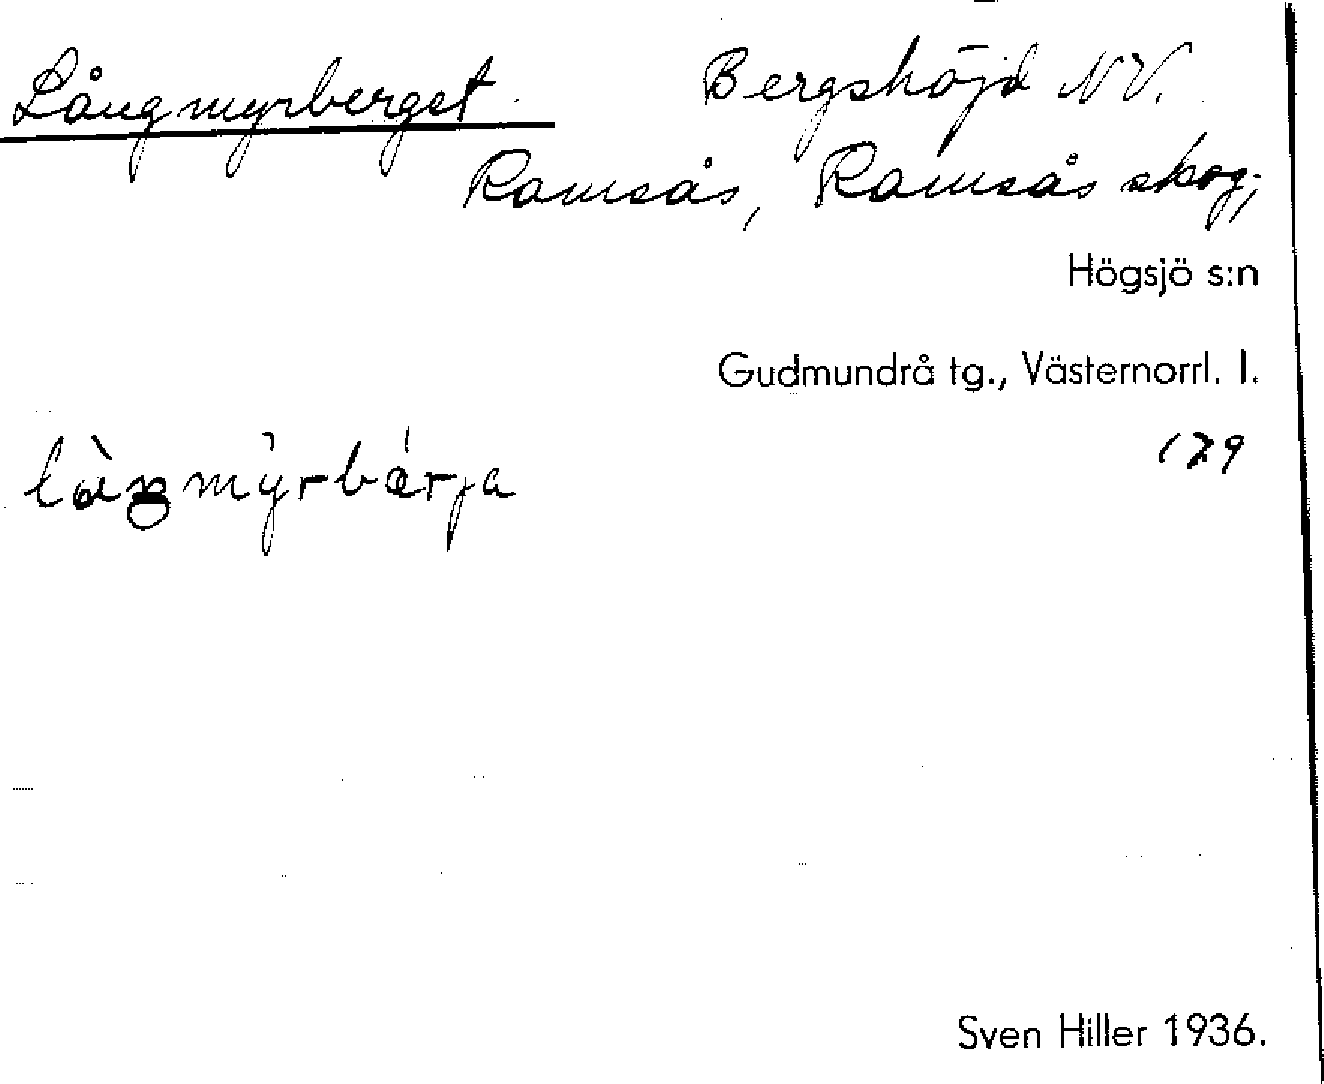 Långmyrberget. Bergshöjd NV.
Ramsås, Ramsås skog;
Högsjö s:n
Gudmundrå tg., Västernorrl. l.
179
Sven Hiller 1936.